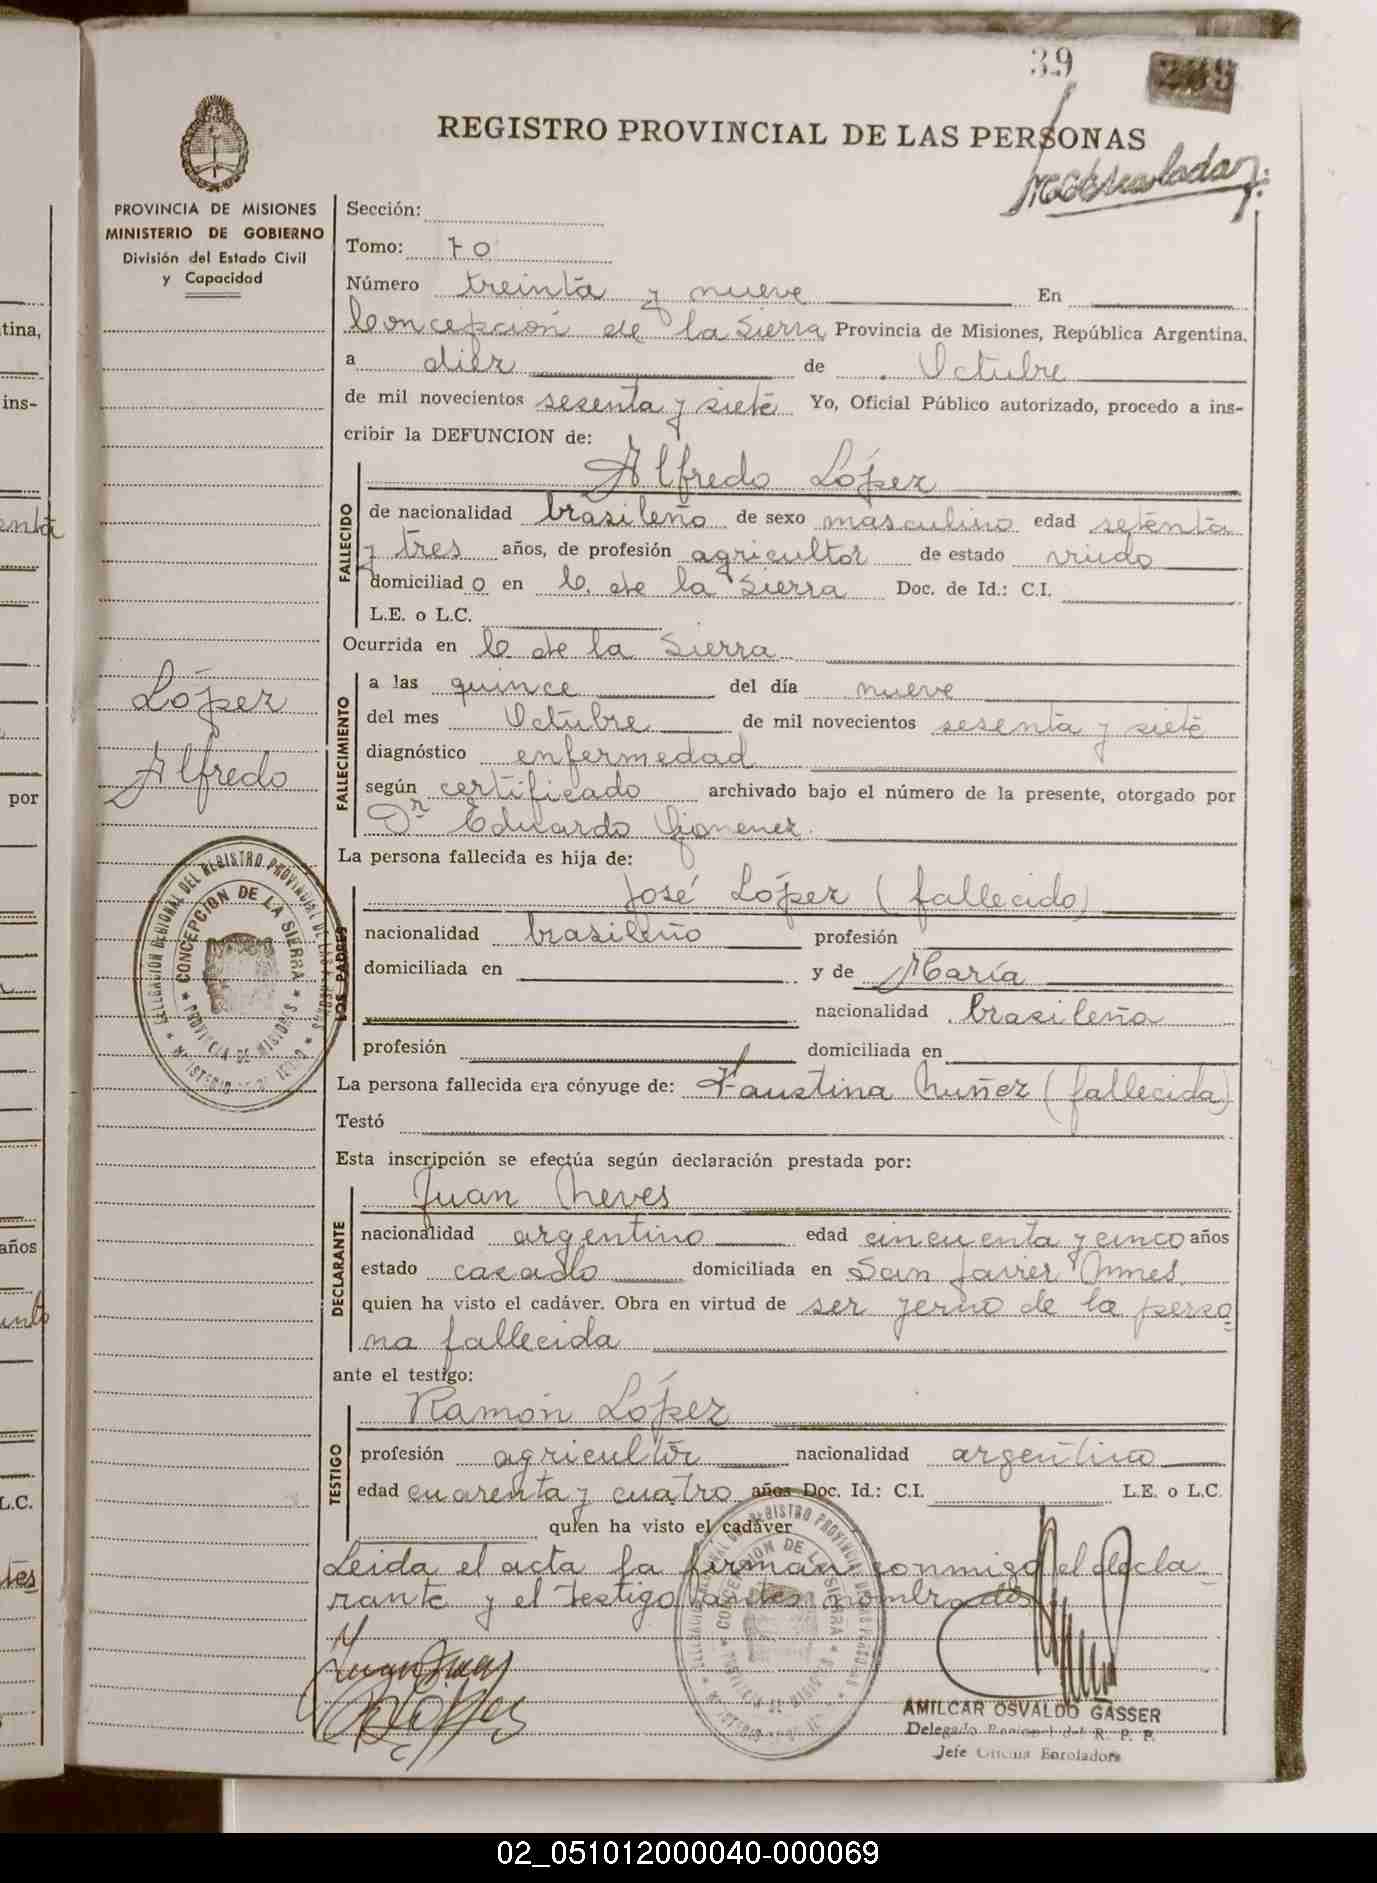 39
209
REGISTRO PROVINCIAL DE LAS PERSONAS
PROVINCIA DE MISIONES
MINISTERIO DE GOBIERNO
División del Estado Civil
y Capacidad
Sección:
Tomo: 70
Número treinta y nueve En
Concepción de la Sierra Provincia de Misiones, República Argentina,
a diez de Octubre
de mil novecientos sesenta y siete Yo, Oficial Público autorizado, procedo a ins-
cribir la DEFUNCION de:
FALLECIDO
Alfredo López
de nacionalidad brasileño de sexo masculino edad setenta
y tres años, de profesión agricultor de estado viudo
domiciliado en C. de la Sierra Doc. de Id.: C.I.
L.E. o L.C.
Ocurrida en C. de la Sierra
López
Alfredo
FALLECIMIENTO
a las quince del día nueve
del mes Octubre de mil novecientos sesenta y siete
diagnóstico enfermedad
según certificado archivado bajo el número de la presente, otorgado por
Dr Eduardo Gimenez.
La persona fallecida es hija de:
LOS PADRES
José López (fallecido)
nacionalidad brasileño profesión
domiciliada en y de María
nacionalidad brasileña
profesión domiciliada en
La persona fallecida era cónyuge de: Faustina Nuñez (fallecida)
Testó
Esta inscripción se efectúa según declaración prestada por:
DECLARANTE
Juan Neves
nacionalidad argentino edad cincuenta y cinco años
estado casado domiciliada en San Javier Mnes.
quien ha visto el cadáver. Obra en virtud de ser yerno de la perso
na fallecida
ante el testigo:
TESTIGO
Ramón López
profesión agricultor nacionalidad argentino
edad cuarenta y cuatro años Doc. Id.: C.I. L.E. o L.C.
quien ha visto el cadáver
Leida el acta la firman conmigo el decla-
rante y el testigo antes nombrados
CONCEPCION DE LA SIERRA
PROVINCIA DE MISIONES
AMILCAR OSVALDO GASSER
Delegado Regional del R. P. P.
Jefe Oficina Enroladora
tina,
ins-
enta
por
años
L.C.
tes
02_051012000040-000069